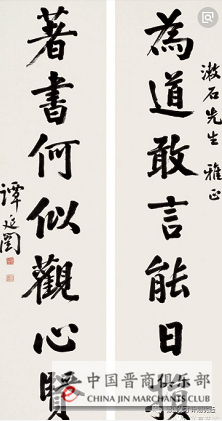 漱石先生 雅正
為道敢言能日損
著書何似觀心賢
譚延闓
中国晋商俱乐部
CHINA JIN MERCHANTS CLUB